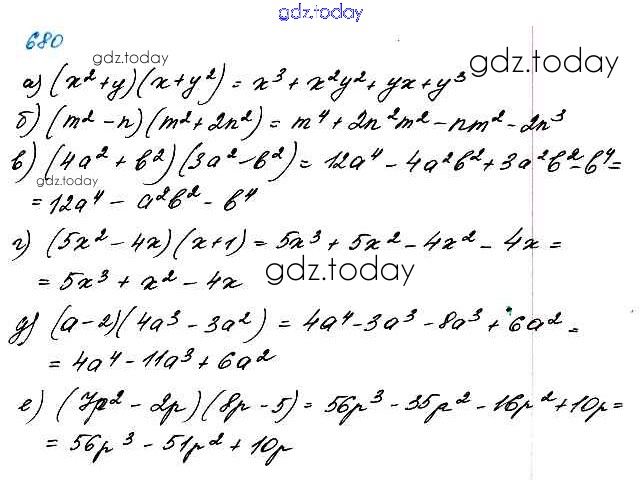 gdz.today
680
gdz.today
gdz.today
а) (x²+y)(x+y²) = x³ + x²y² + yx + y³
б) (m² - n)(m² + 2n²) = m⁴ + 2n²m² - nm² - 2n³
в) (4a² + b²)(3a² - b²) = 12a⁴ - 4a²b² + 3a²b² - b⁴ =
gdz.today
= 12a⁴ - a²b² - b⁴
г) (5x² - 4x)(x+1) = 5x³ + 5x² - 4x² - 4x =
= 5x³ + x² - 4x
gdz.today
д) (a-2)(4a³ - 3a²) = 4a⁴ - 3a³ - 8a³ + 6a² =
= 4a⁴ - 11a³ + 6a²
е) (7p² - 2p)(8p - 5) = 56p³ - 35p² - 16p² + 10p =
= 56p³ - 51p² + 10p